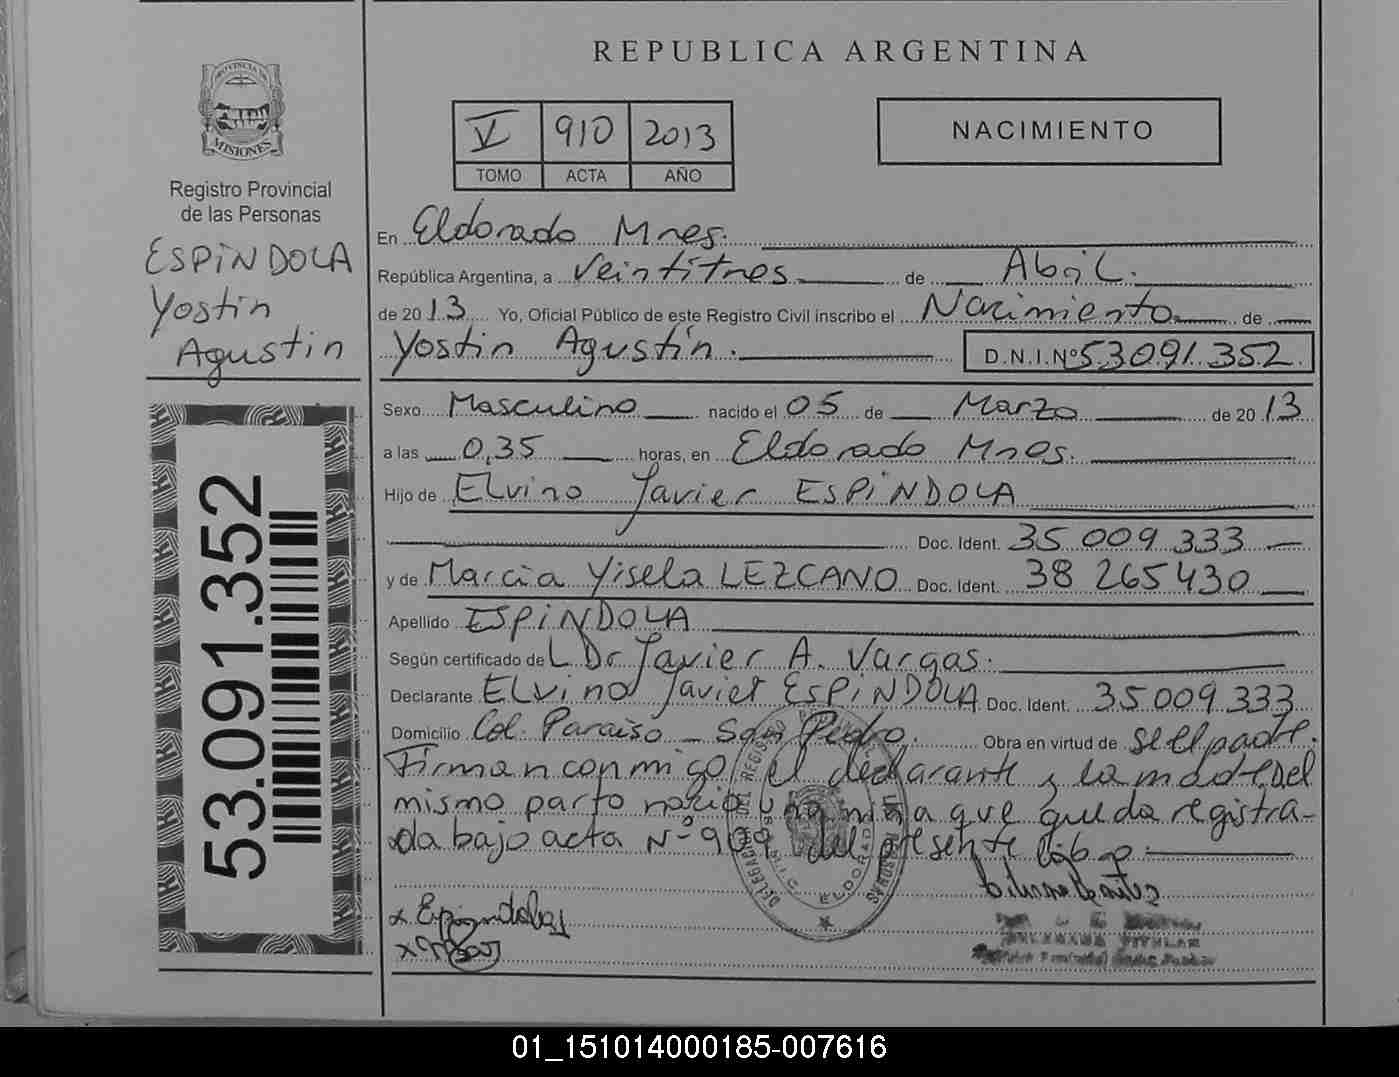 REPUBLICA ARGENTINA
PROVINCIA DE
MISIONES
Registro Provincial
de las Personas
ESPINDOLA
Yostin
Agustin
53.091.352
V 910 2013
TOMO ACTA AÑO
NACIMIENTO
En Eldorado Mnes.
República Argentina, a Veintitres de Abril.
de 2013 Yo, Oficial Público de este Registro Civil inscribo el Nacimiento de
Yostin Agustín. D.N.I.Nº 53091.352
Sexo Masculino nacido el 05 de Marzo de 2013
a las 0,35 horas, en Eldorado Mnes.
Hijo de Elvino Javier ESPINDOLA
Doc. Ident. 35 009 333
y de Marcia Yisela LEZCANO Doc. Ident. 38 265430
Apellido ESPINDOLA
Según certificado del Dr Javier A. Vargas.
Declarante Elvino Javier ESPINDOLA Doc. Ident. 35009 333
Domicilio Col. Paraiso - San Pedro. Obra en virtud de ser el padre.
Firman conmigo el declarante y la madre. Del
mismo parto nacio una niña que queda registra-
da bajo acta Nº 909 del presente libro.
x Espindola
01_151014000185-007616